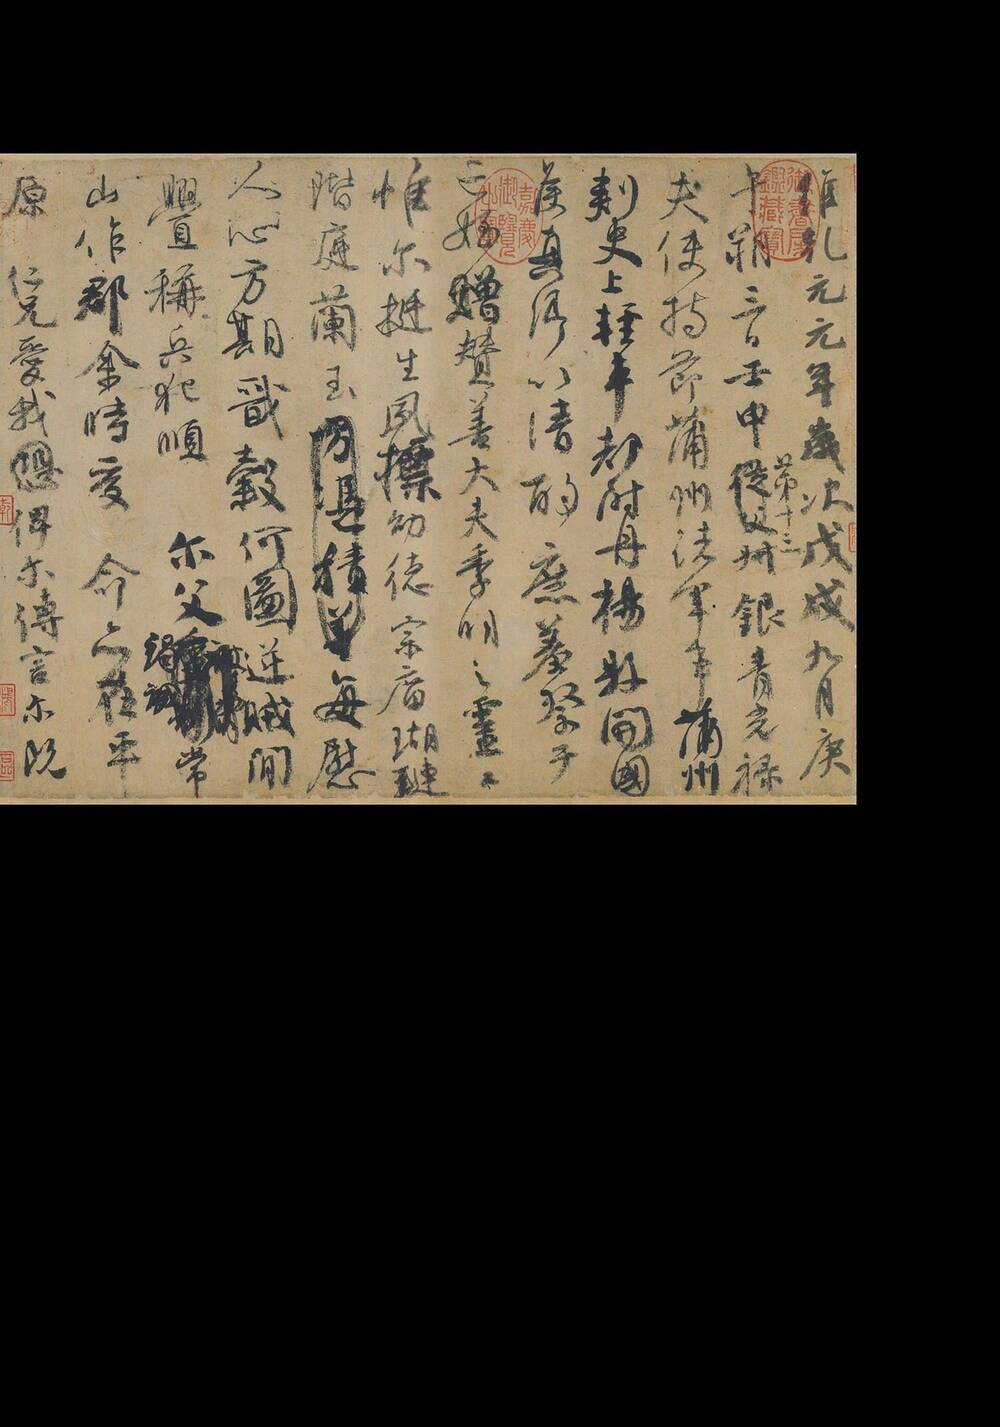 維乾元元年歲次戊戌九月庚
午朔三日壬申第十三從父叔銀青光祿
夫使持節蒲州諸軍事蒲州
刺史上輕車都尉丹楊縣開國
侯真卿以清酌庶羞祭于
亡姪贈贊善大夫季明之靈曰
惟爾挺生夙標幼德宗廟瑚璉
階庭蘭玉方憑積善每慰
人心方期戩穀何圖逆賊閒
舋稱兵犯順爾父竭誠常
山作郡余時受命亦在平
原仁兄愛我恐俾爾傳言爾既